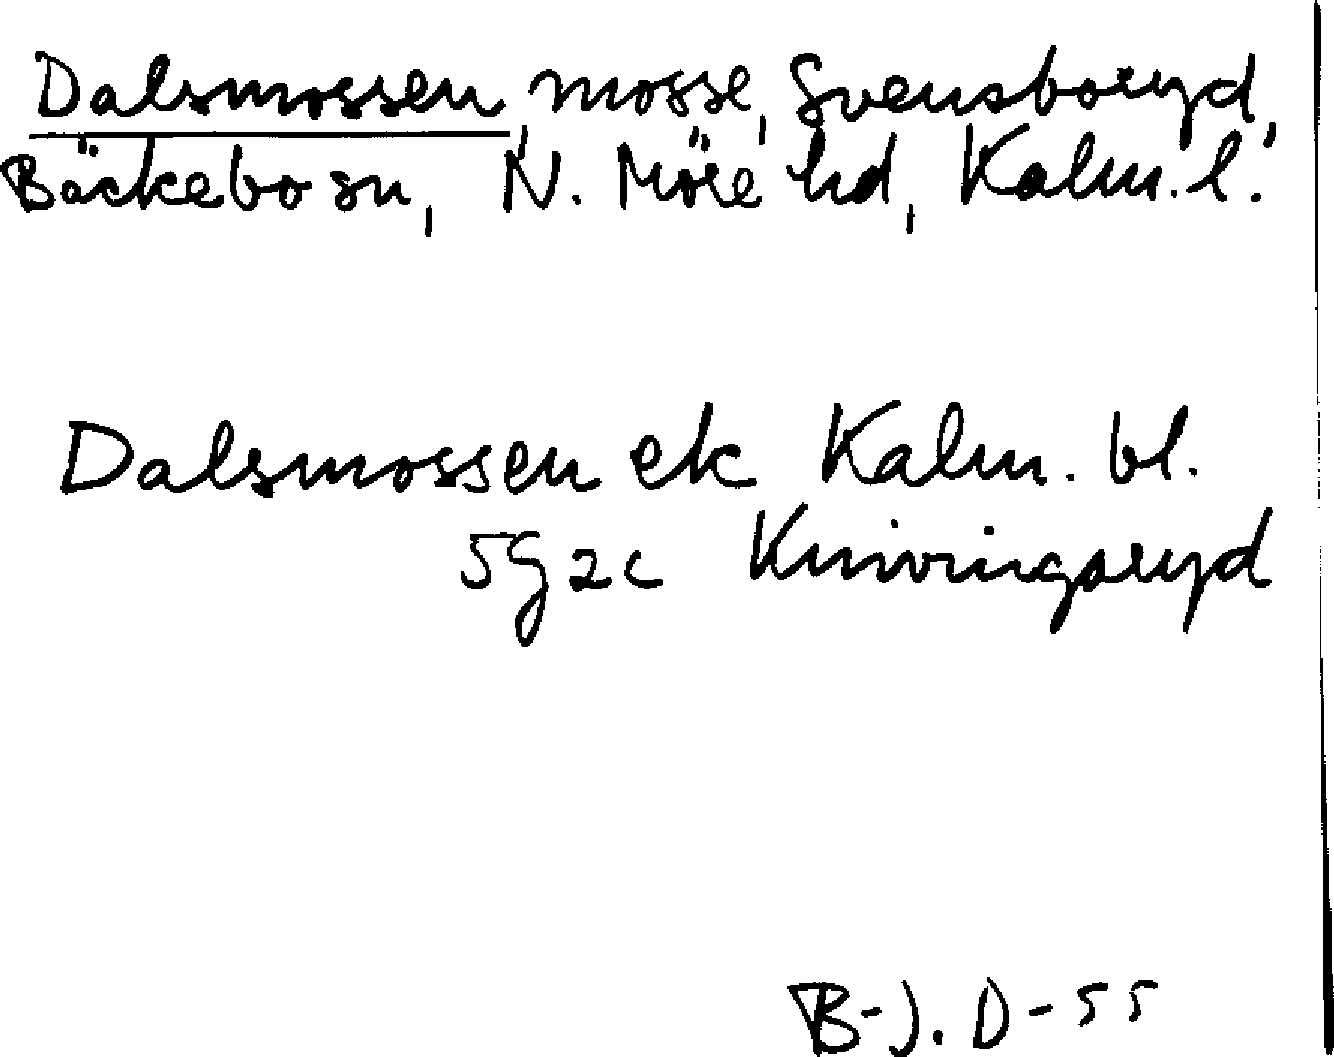 Dalsmossen, mosse, Svensboryd,
Bäckebo sn, N. Möre hd, Kalm. l.
Dalsmossen ek Kalm. bl.
5g2c Knivingaryd
B-J. D-55